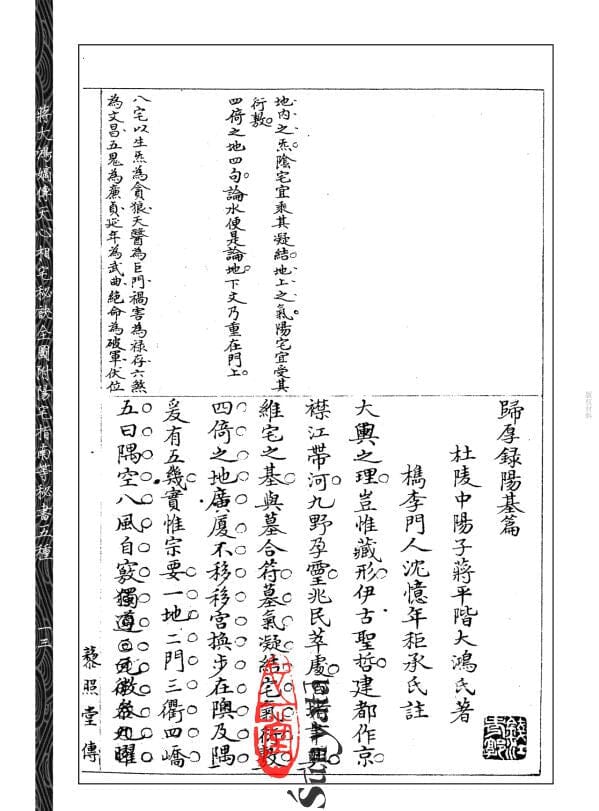 地内之炁陰宅宜乘其凝結地上之氣陽宅宜受其
衍敷
四倚之地四句論水便是論地下文乃重在門上
八宅以生炁為貪狼天醫為巨門禍害為祿存六煞
為文昌五鬼為廉貞延年為武曲絕命為破軍伏位
歸厚録陽基篇
杜陵中陽子蔣平階大鴻氏著
檇李門人沈憶年秬承氏註
大輿之理豈惟藏形伊古聖哲建都作京
襟江帶河九野孕靈兆民萃處
維宅之基與墓合符墓氣凝結宅氣衍敷
四倚之地廣厦不移移宮換步在隩及隅
爰有五幾實惟宗要一地二門三衢四嶠
五曰隅空八風自竅獨遵元
藜照堂 傳
蔣大鴻嫡傳天心相宅秘訣全圖附陽宅指南等秘書五種
一三
版权材料